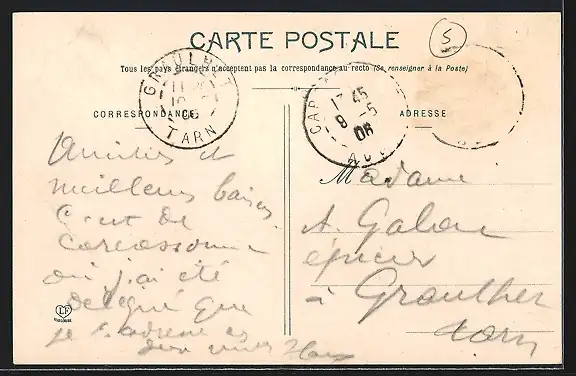 CARTE POSTALE
5
Tous les pays étrangers n'acceptent pas la correspondance au recto (Se renseigner à la Poste)
GRAULHET
TARN
17 45
9 -5
06
CORRESPONDANCE
ADRESSE
Amitiés et
meilleurs baisers
C'est de
Carcassonne
où j'ai été
délégué que
je t'adresse ces
deux
Madame
A.
épicier
à Graulhet
Tarn
LF